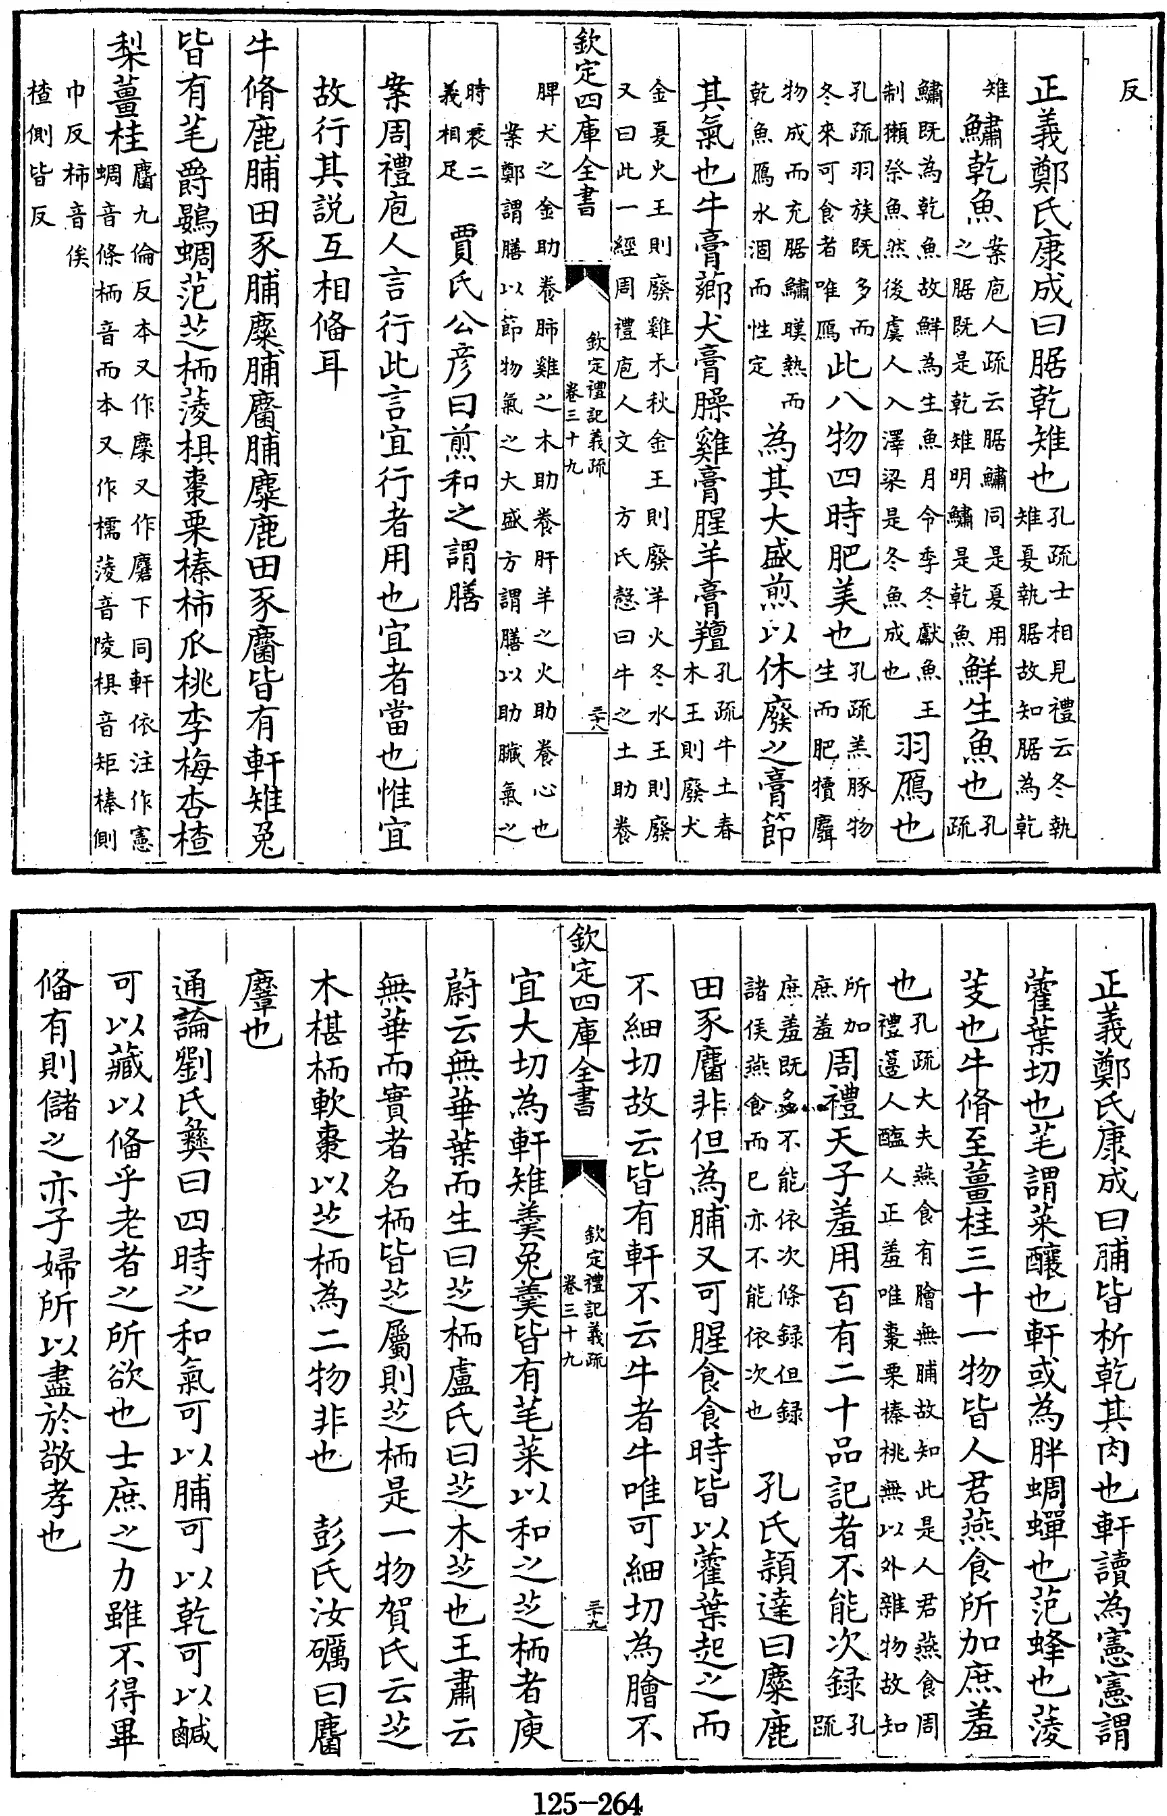 反
正義鄭氏康成曰腒乾雉也孔疏士相見禮云冬執
雉夏執腒故知腒為乾
雉鱐乾魚案庖人疏云腒鱐同是夏用
之腒既是乾雉明鱐是乾魚鮮生魚也孔疏
鱐既為乾魚故鮮為生魚月令季冬獻魚王
制獺祭魚然後虞人入澤梁是冬魚成也羽鴈也
孔疏羽族既多而
冬來可食者唯鴈此八物四時肥美也孔疏羔豚物
生而肥犢麛
物成而充腒鱐暵熱而
乾魚鴈水涸而性定為其大盛煎以休廢之膏節
其氣也牛膏薌犬膏臊雞膏腥羊膏羶孔疏牛土春
木王則廢犬
金夏火王則廢雞木秋金王則廢羊火冬水王則廢
又曰此一經周禮庖人文 方氏慤曰牛之土助養
欽定四庫全書
欽定禮記義疏
卷三十九
三十八
脾犬之金助養肺雞之木助養肝羊之火助養心也
案鄭謂膳以節物氣之大盛方謂膳以助臟氣之
時衰二
義相足 賈氏公彥曰煎和之謂膳
案周禮庖人言行此言宜行者用也宜者當也惟宜
故行其說互相備耳
牛脩鹿脯田豕脯麋脯麕脯麋鹿田豕麕皆有軒雉兔
皆有芼爵鷃蜩范芝栭蔆椇棗栗榛柿瓜桃李梅杏楂
梨薑桂麕九倫反本又作麇又作麏下同軒依注作憲
蜩音條栭音而本又作檽蔆音陵椇音矩榛側
巾反柿音俟
楂側皆反
正義鄭氏康成曰脯皆析乾其肉也軒讀為憲憲謂
藿葉切也芼謂菜釀也軒或為胖蜩蟬也范蜂也蔆
芰也牛脩至薑桂三十一物皆人君燕食所加庶羞
也孔疏大夫燕食有膾無脯故知此是人君燕食周
禮籩人醢人正羞唯棗栗榛桃無以外雜物故知
所加
庶羞周禮天子羞用百有二十品記者不能次錄孔疏
庶羞既多不能依次條錄但錄
諸侯燕食而已亦不能依次也 孔氏穎達曰麋鹿
田豕麕非但為脯又可腥食食時皆以藿葉起之而
不細切故云皆有軒不云牛者牛唯可細切為膾不
欽定四庫全書
欽定禮記義疏
卷三十九
三十九
宜大切為軒雉羹兔羹皆有芼菜以和之芝栭者庾
蔚云無華葉而生曰芝栭盧氏曰芝木芝也王肅云
無華而實者名栭皆芝屬則芝栭是一物賀氏云芝
木椹栭軟棗以芝栭為二物非也 彭氏汝礪曰麕
麞也
通論劉氏彝曰四時之和氣可以脯可以乾可以鹹
可以藏以備乎老者之所欲也士庶之力雖不得畢
備有則儲之亦子婦所以盡於敬孝也
125-264